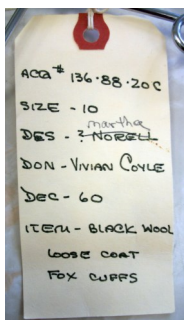 ACQ # 136.88.20C
SIZE - 10
martha
DES - ? NORELL
DON - VIVIAN COYLE
DEC - 60
ITEM - BLACK WOOL
LOOSE COAT
FOX CUFFS